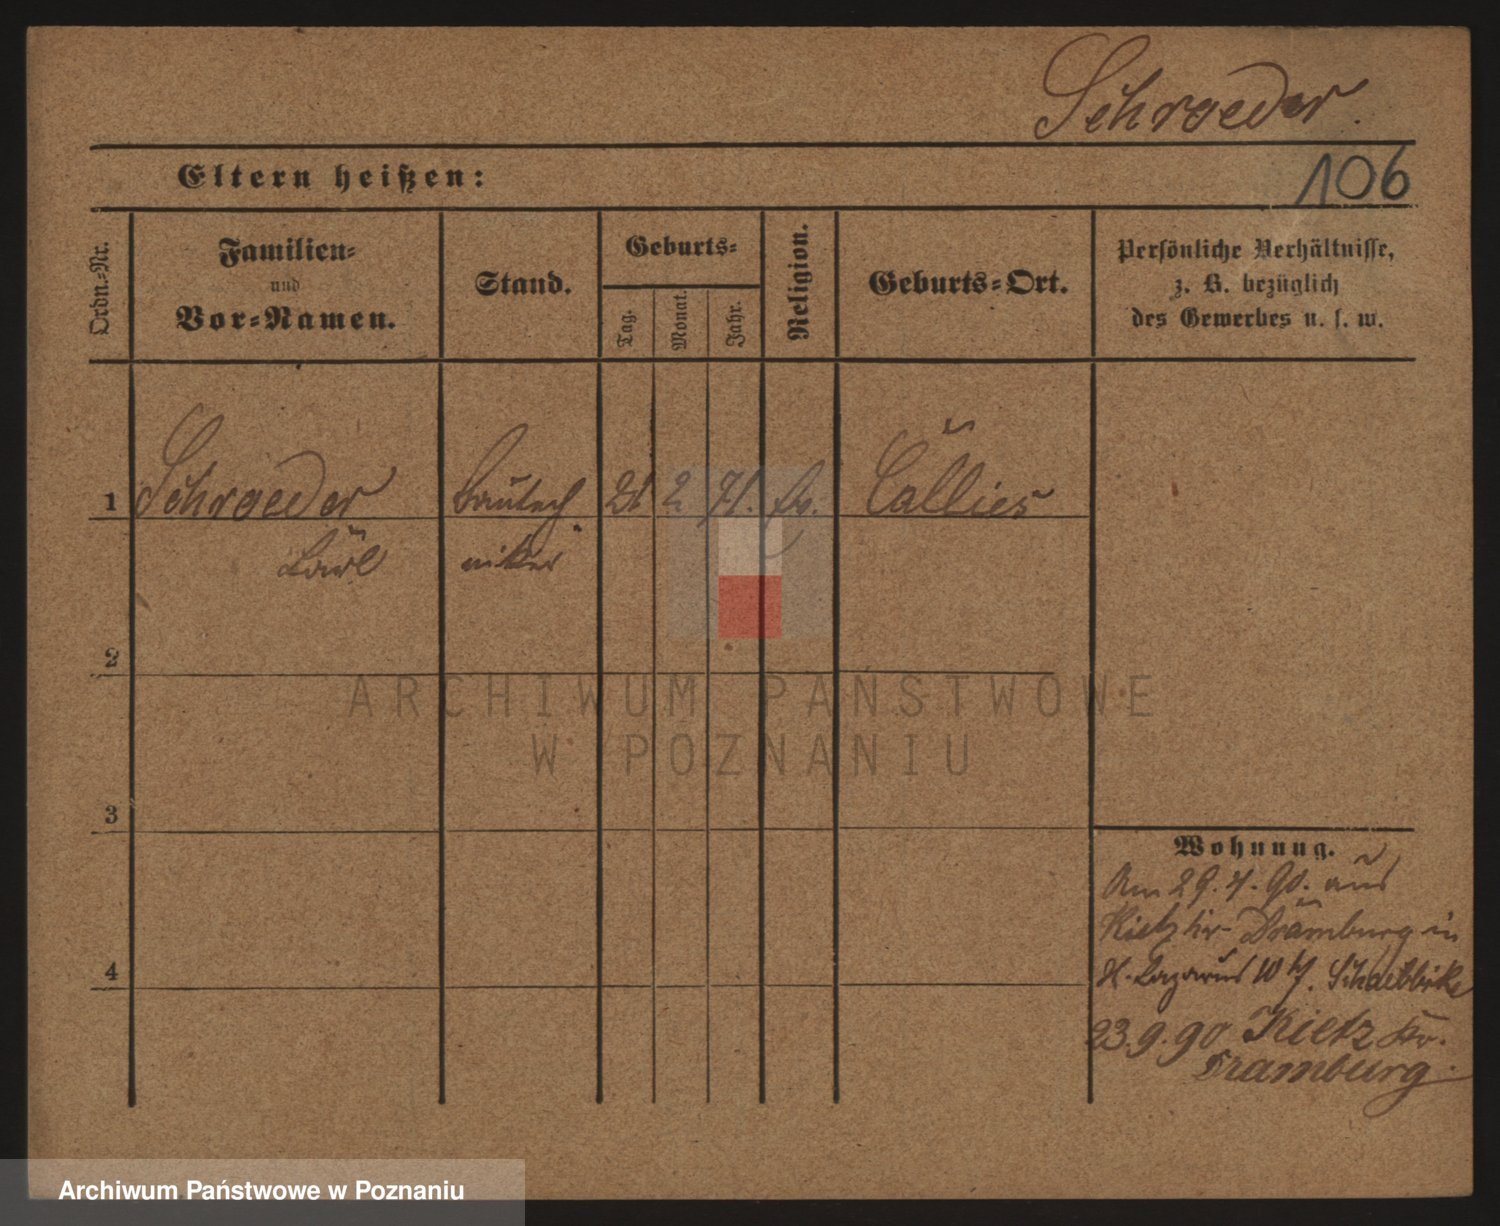 Schroeder.
Eltern heißen:
106
Ordn.-Nr.
Familien-
und
Vor-Namen.
Stand.
Geburts-
Tag.
Monat.
Jahr.
Religion.
Geburts-Ort.
Persönliche Verhältnisse,
z. B. bezüglich
des Gewerbes u. s. w.
1 Schroeder Bautech 21 2 71. Ev. Callies
Carl niker
2
3
4
Wohnung.
Am 29. 4. 90. aus
Kietz kr. Dramburg in
St. Lazarus bei
23.9.90 Kietz Kr.
Dramburg.
ARCHIWUM PAŃSTWOWE
W POZNANIU
Archiwum Państwowe w Poznaniu